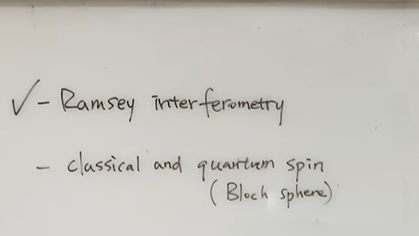 ✓ - Ramsey interferometry
- classical and quantum spin
(Bloch sphere)